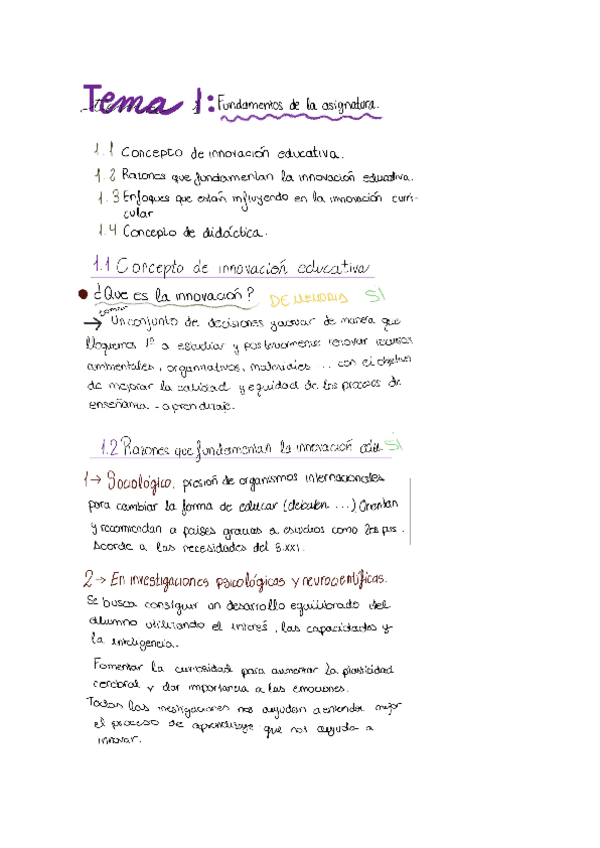 Tema 1: Fundamentos de la asignatura.
1.1 Concepto de innovación educativa.
1.2 Razones que fundamentan la innovación educativa.
1.3 Enfoques que están influyendo en la innovación curri-
cular
1.4 Concepto de didáctica.
1.1 Concepto de innovación educativa
¿Que es la innovación? DE MEMORIA SI
→ Un conjunto de decisiones y actuar de manera que
lleguemos 1º a estudiar y posteriormente renovar recursos
ambientales, organizativos, materiales ... con el objetivo
de mejorar la calidad y equidad de los procesos de
enseñanza - aprendizaje.
1.2 Razones que fundamentan la innovación edu. SI
1→ Sociológico, presión de organismos internacionales
para cambiar la forma de educar (debaten ...) Orientan
y recomiendan a países gracias a estudios como
Acorde a las necesidades del S.XXI.
2→ En investigaciones psicológicas y neurocientíficas.
Se busca conseguir un desarrollo equilibrado del
alumno utilizando el interés, las capacidades y
la inteligencia.
Fomentar la curiosidad para aumentar la plasticidad
cerebral y dar importancia a las emociones.
Todas las investigaciones nos ayudan a entender mejor
el proceso de aprendizaje que nos ayuda a
innovar.